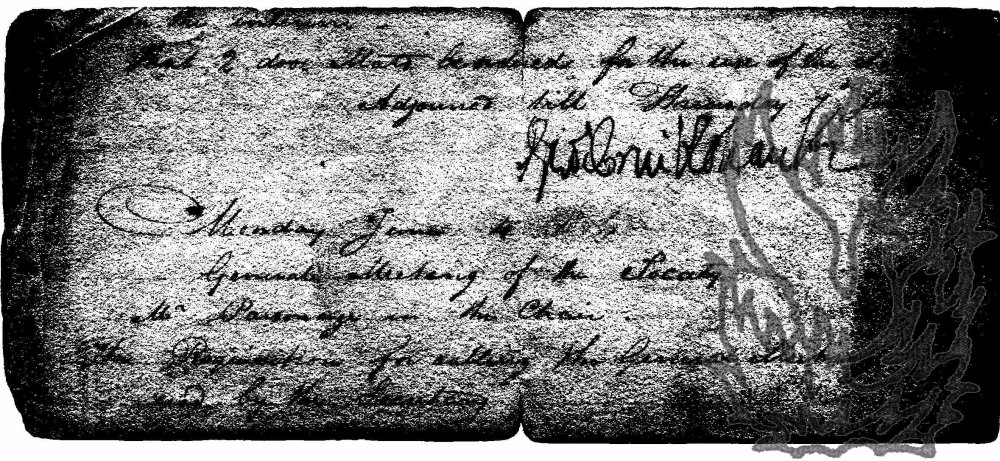 the
that 2 doz. Mats be ordered for the use of the
Adjourned till Thursday 7
Monday June 4
General Meeting of the Society
Mr Parsonage in the Chair.
The Requisition for calling the General Meet
read by the Secretary